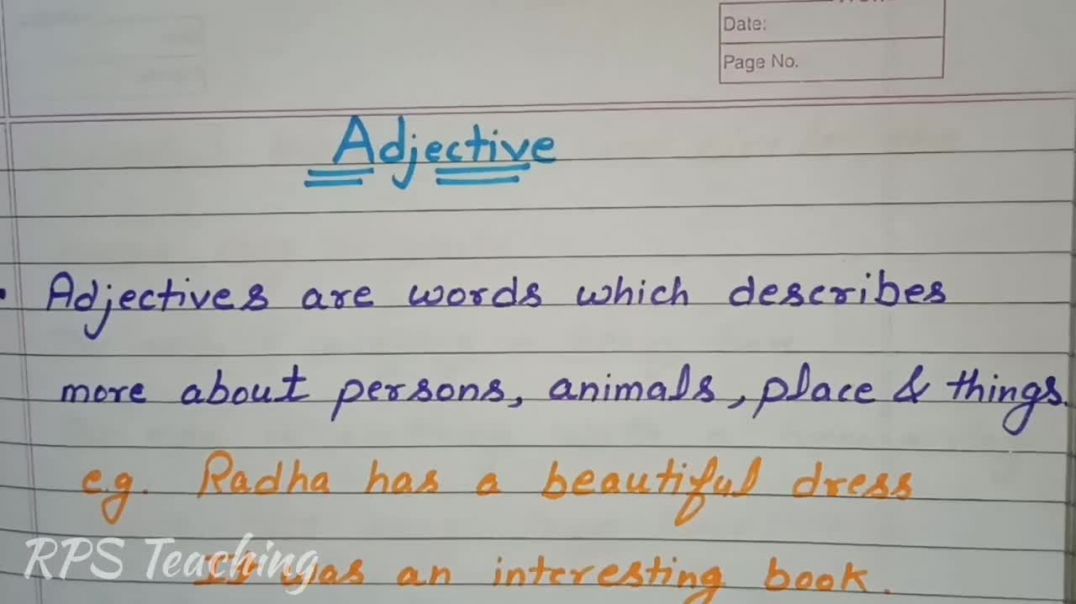 Date:
Page No.
Adjective
Adjectives are words which describes
more about persons, animals, place & things.
e.g. Radha has a beautiful dress
RPS Teaching
It was an interesting book.